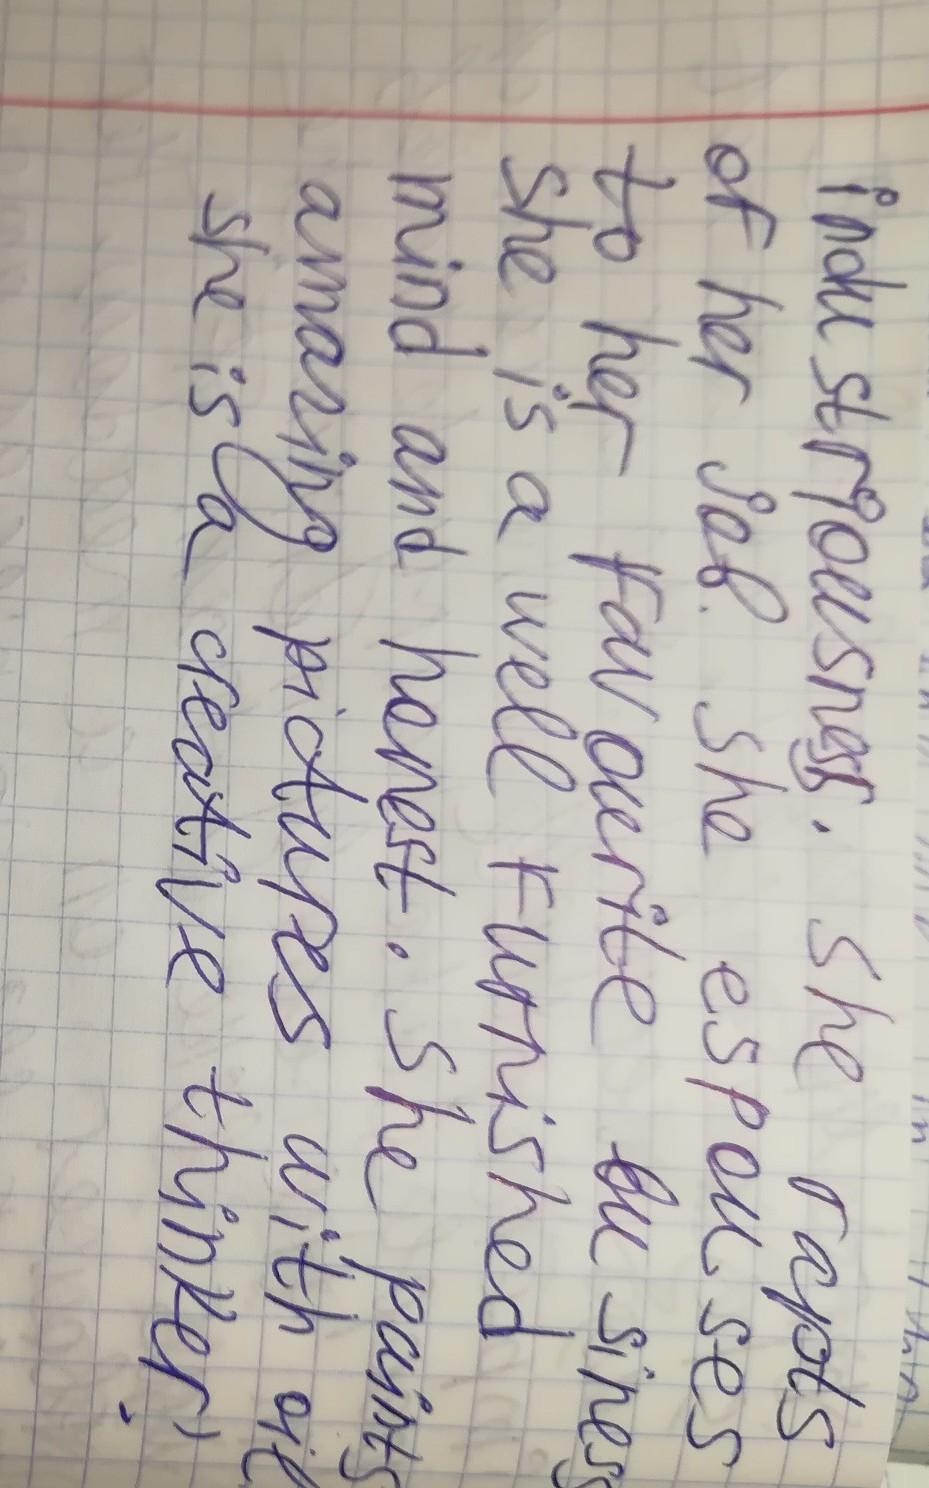 industriousness. She rapts
of her job. She espouses
to her favourite business
She is a well furnished
mind and honest. She paints
amazing pictures with oil
she is a creative thinker;